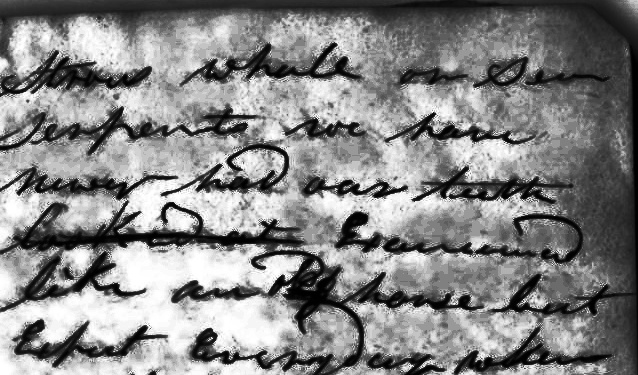 whale or Sea
serpents we have
never had our teeth
looked at Examined
like an old horse but
Expect Every day when